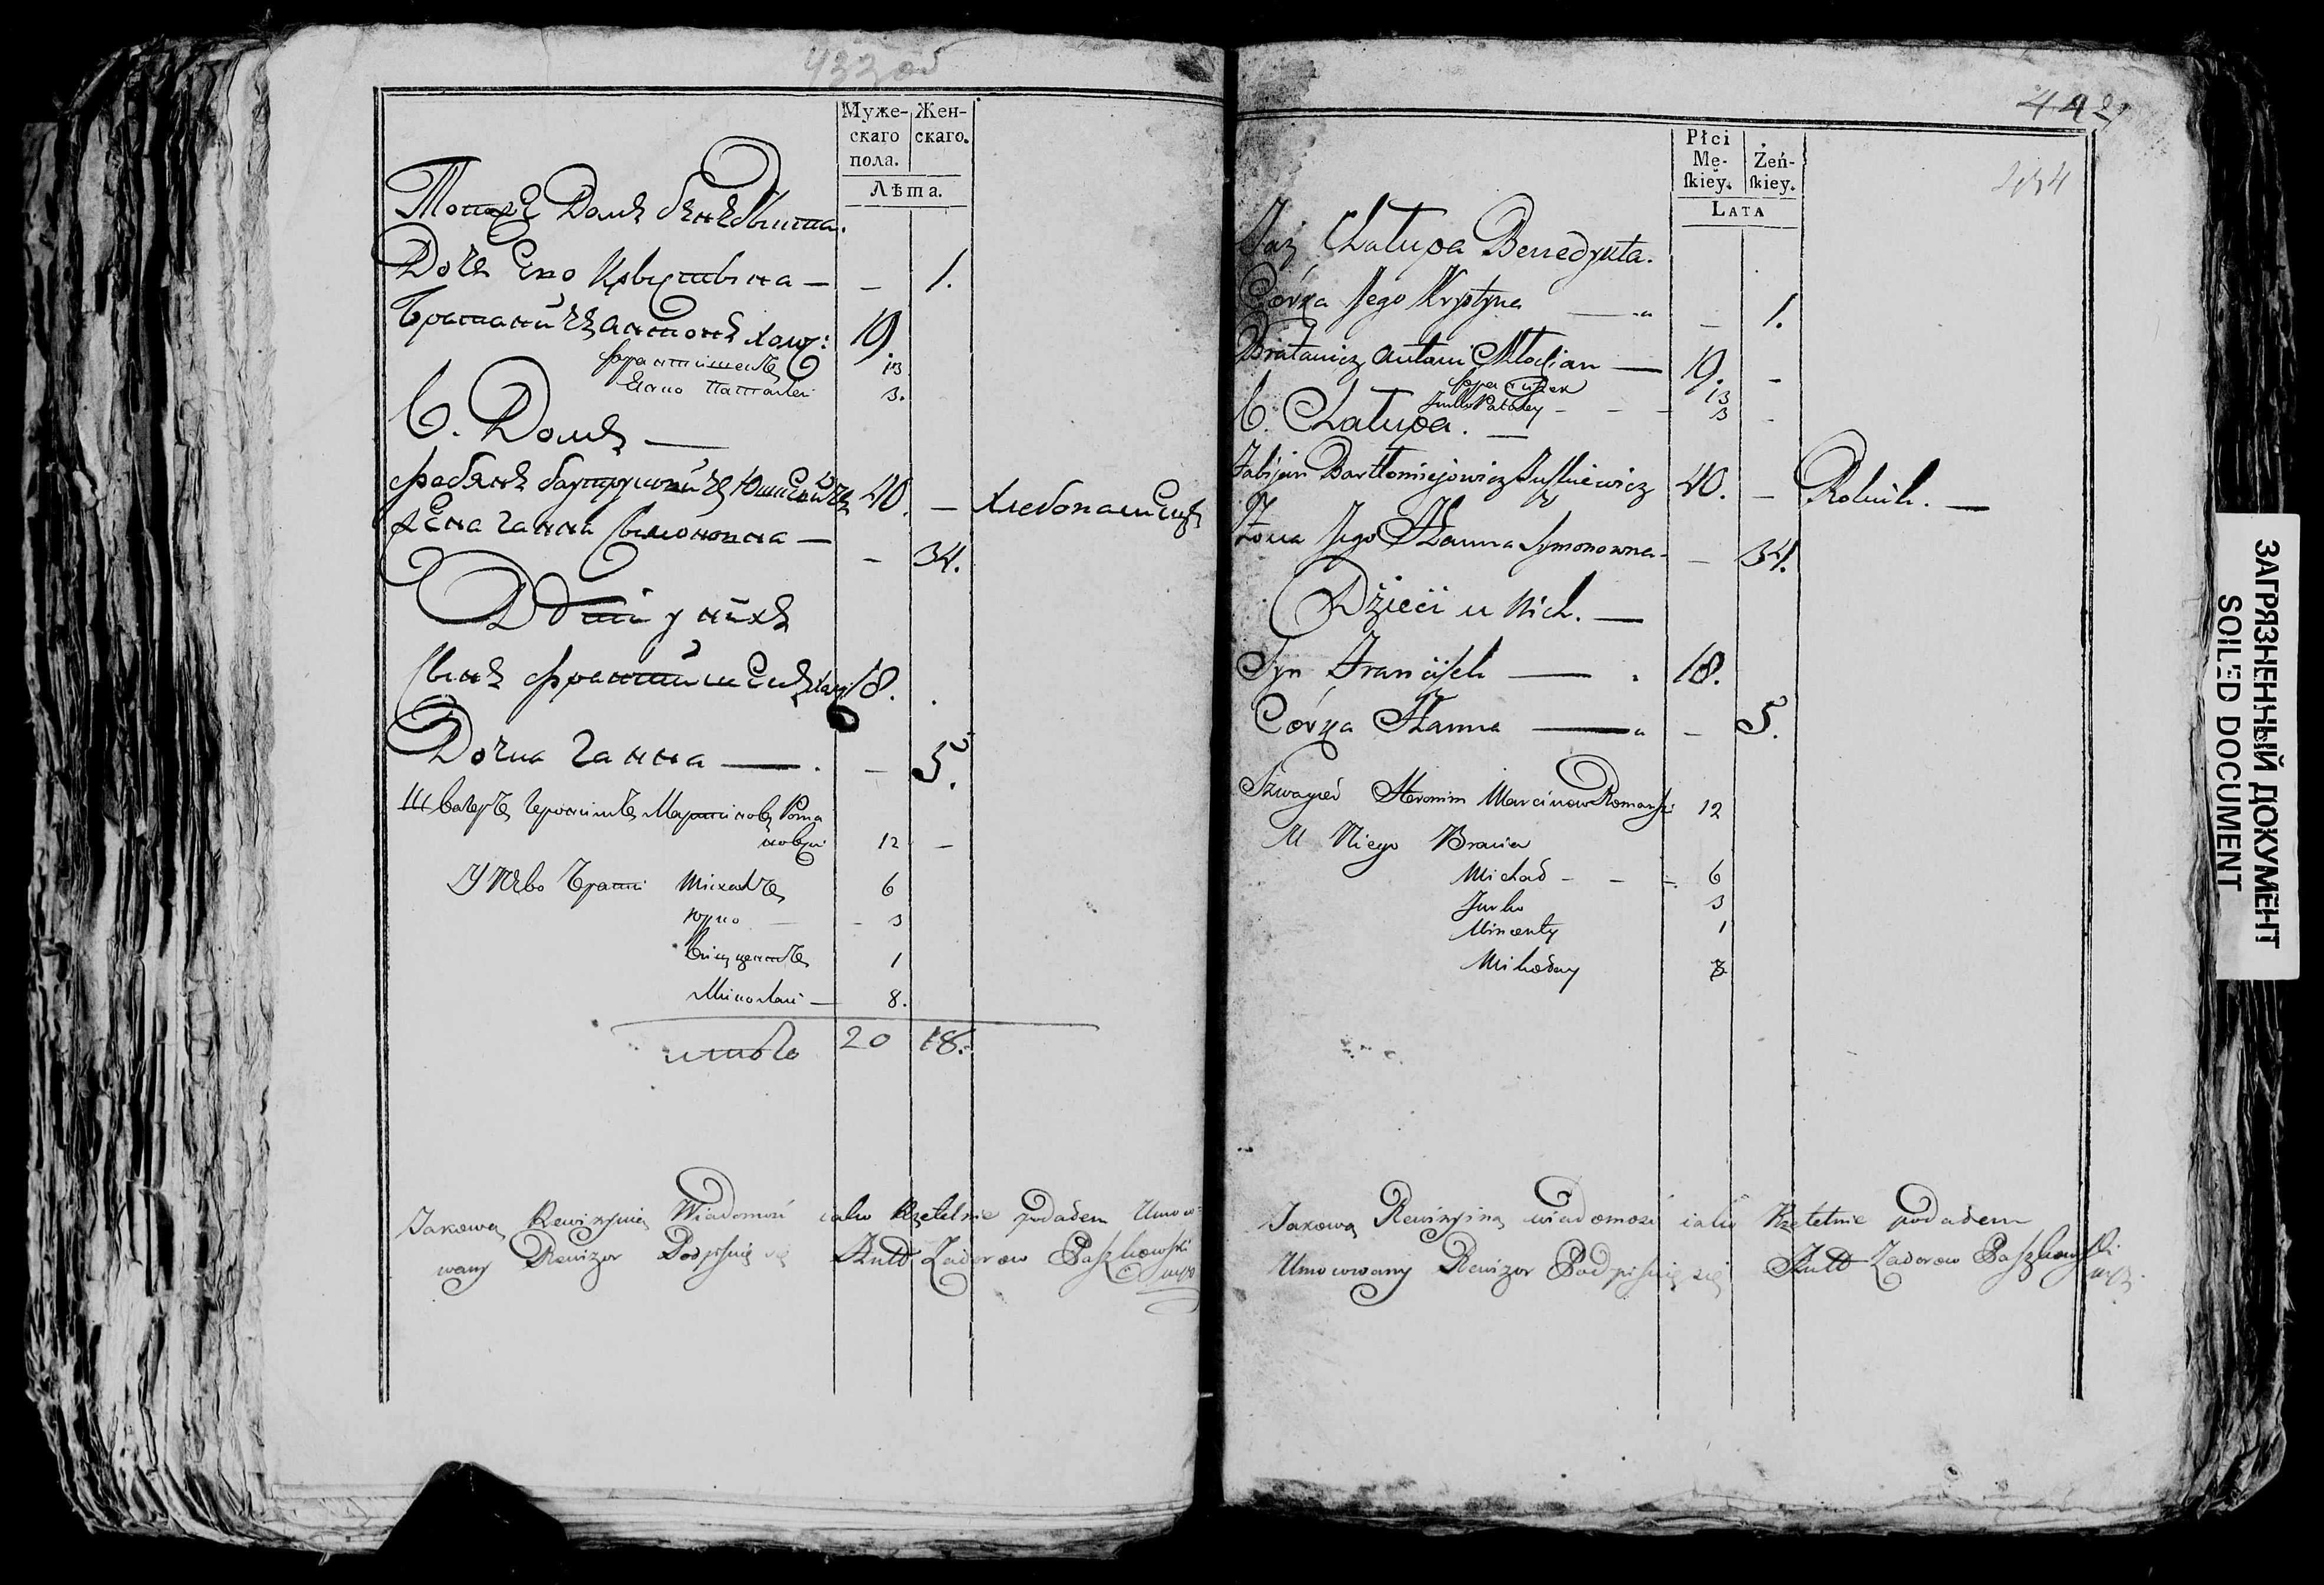 433 об
Муже-
скаго
пола.
Жен-
скаго.
Лѣта.
Тотже Домъ Бенедыкта.
Дочь Его Крыстына — — 1.
Братаничъ Антонъ холо: 19.
Францишекъ 13
3.
6. Домъ —
Фабянъ 40. — Хлебопашецъ
Жена Ганна Сымоновна — — 34.
Дѣти у нихъ
Сынъ Францишекъ 18.
Дочка Ганна — . — 5.
Швагеръ Геронимъ Мартиновъ Рома
новски 12 —
У Нево Брати Михалъ 6
Юрко — - 3
Винцентъ 1
Миколаи — 8.
итого 20 18.
Jakową Rewizyiną Wiadomość iako Rzetelnie podałem Umoco
wany Rewizor Podpisuię się Zadorow Paszkowski
mpp
442
434
Płci
Mę-
ſkiey.
Żeń-
ſkiey.
Lata
Taż Chałupa Benedykta.
Córka Jego Krystyna — — 1.
Bratanicz Antoni Młodzian — 19. -
13
Jurko - - - 3 -
6. Chałupa. —
Fabijan Bartłomiejowicz Juszkiewicz 40. — Rolnik. —
Żona Jego Hanna Symonowna - — 34.
Dzieci u Nich. —
Syn Franciszek — . 18.
Córka Hanna — - 5.
Szwagier Heronim Marcinow Romanski 12
U Niego Bracia
Michał - - - 6
Jurko 3
Wincenty 1
Mikołay 8
Jakową Rewizyiną wiadomość iako Rzetelnie podałem
Umocowany Rewizor Podpisuię się Zadorow Paszkowski
mpp.
ЗАГРЯЗНЕННЫЙ ДОКУМЕНТ
SOILED DOCUMENT